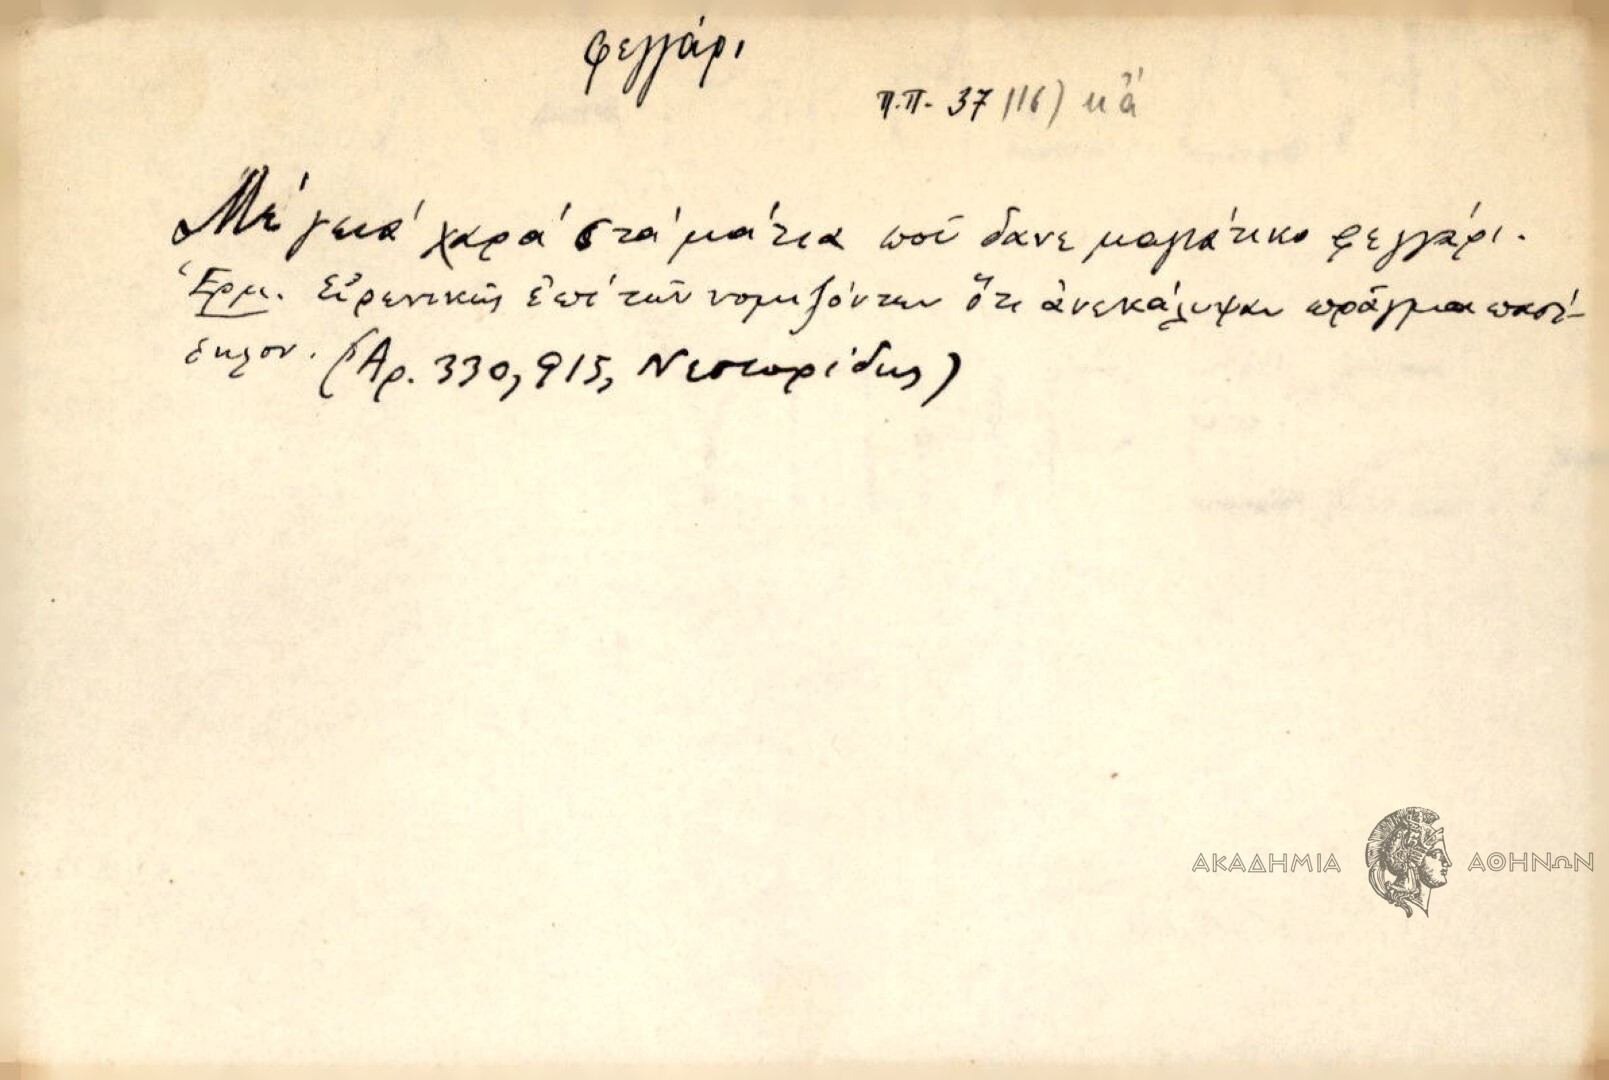 φεγγάρι
π.π. 37 (16) κ ἀ
Μέ γειά χαρά στά μάτια ποῦ δανε μαγιάτικο φεγγάρι.
Ἑρμ. Εἰρωνικῶς ἐπί τῶν νομιζόντων ὅτι ἀνεκάλυψαν πρᾶγμα πασί-
δηλον. (Ἀρ. 330, 915, Νεστορίδης)
ΑΚΑΔΗΜΙΑ ΑΘΗΝΩΝ